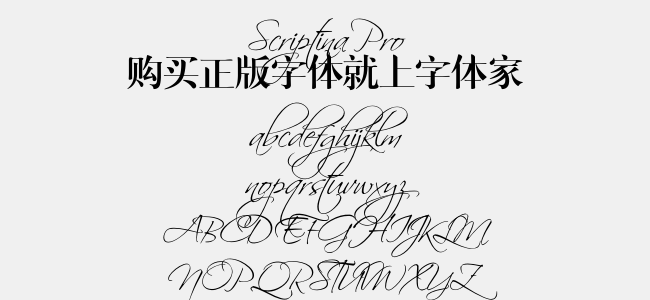 Scriptina Pro
购买正版字体就上字体家
abcdefghijklm
nopqrstuvwxyz
ABCDEFGHIJKLM
NOPQRSTUVWXYZ